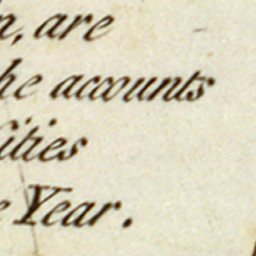 , are
he accounts
ities
e Year.